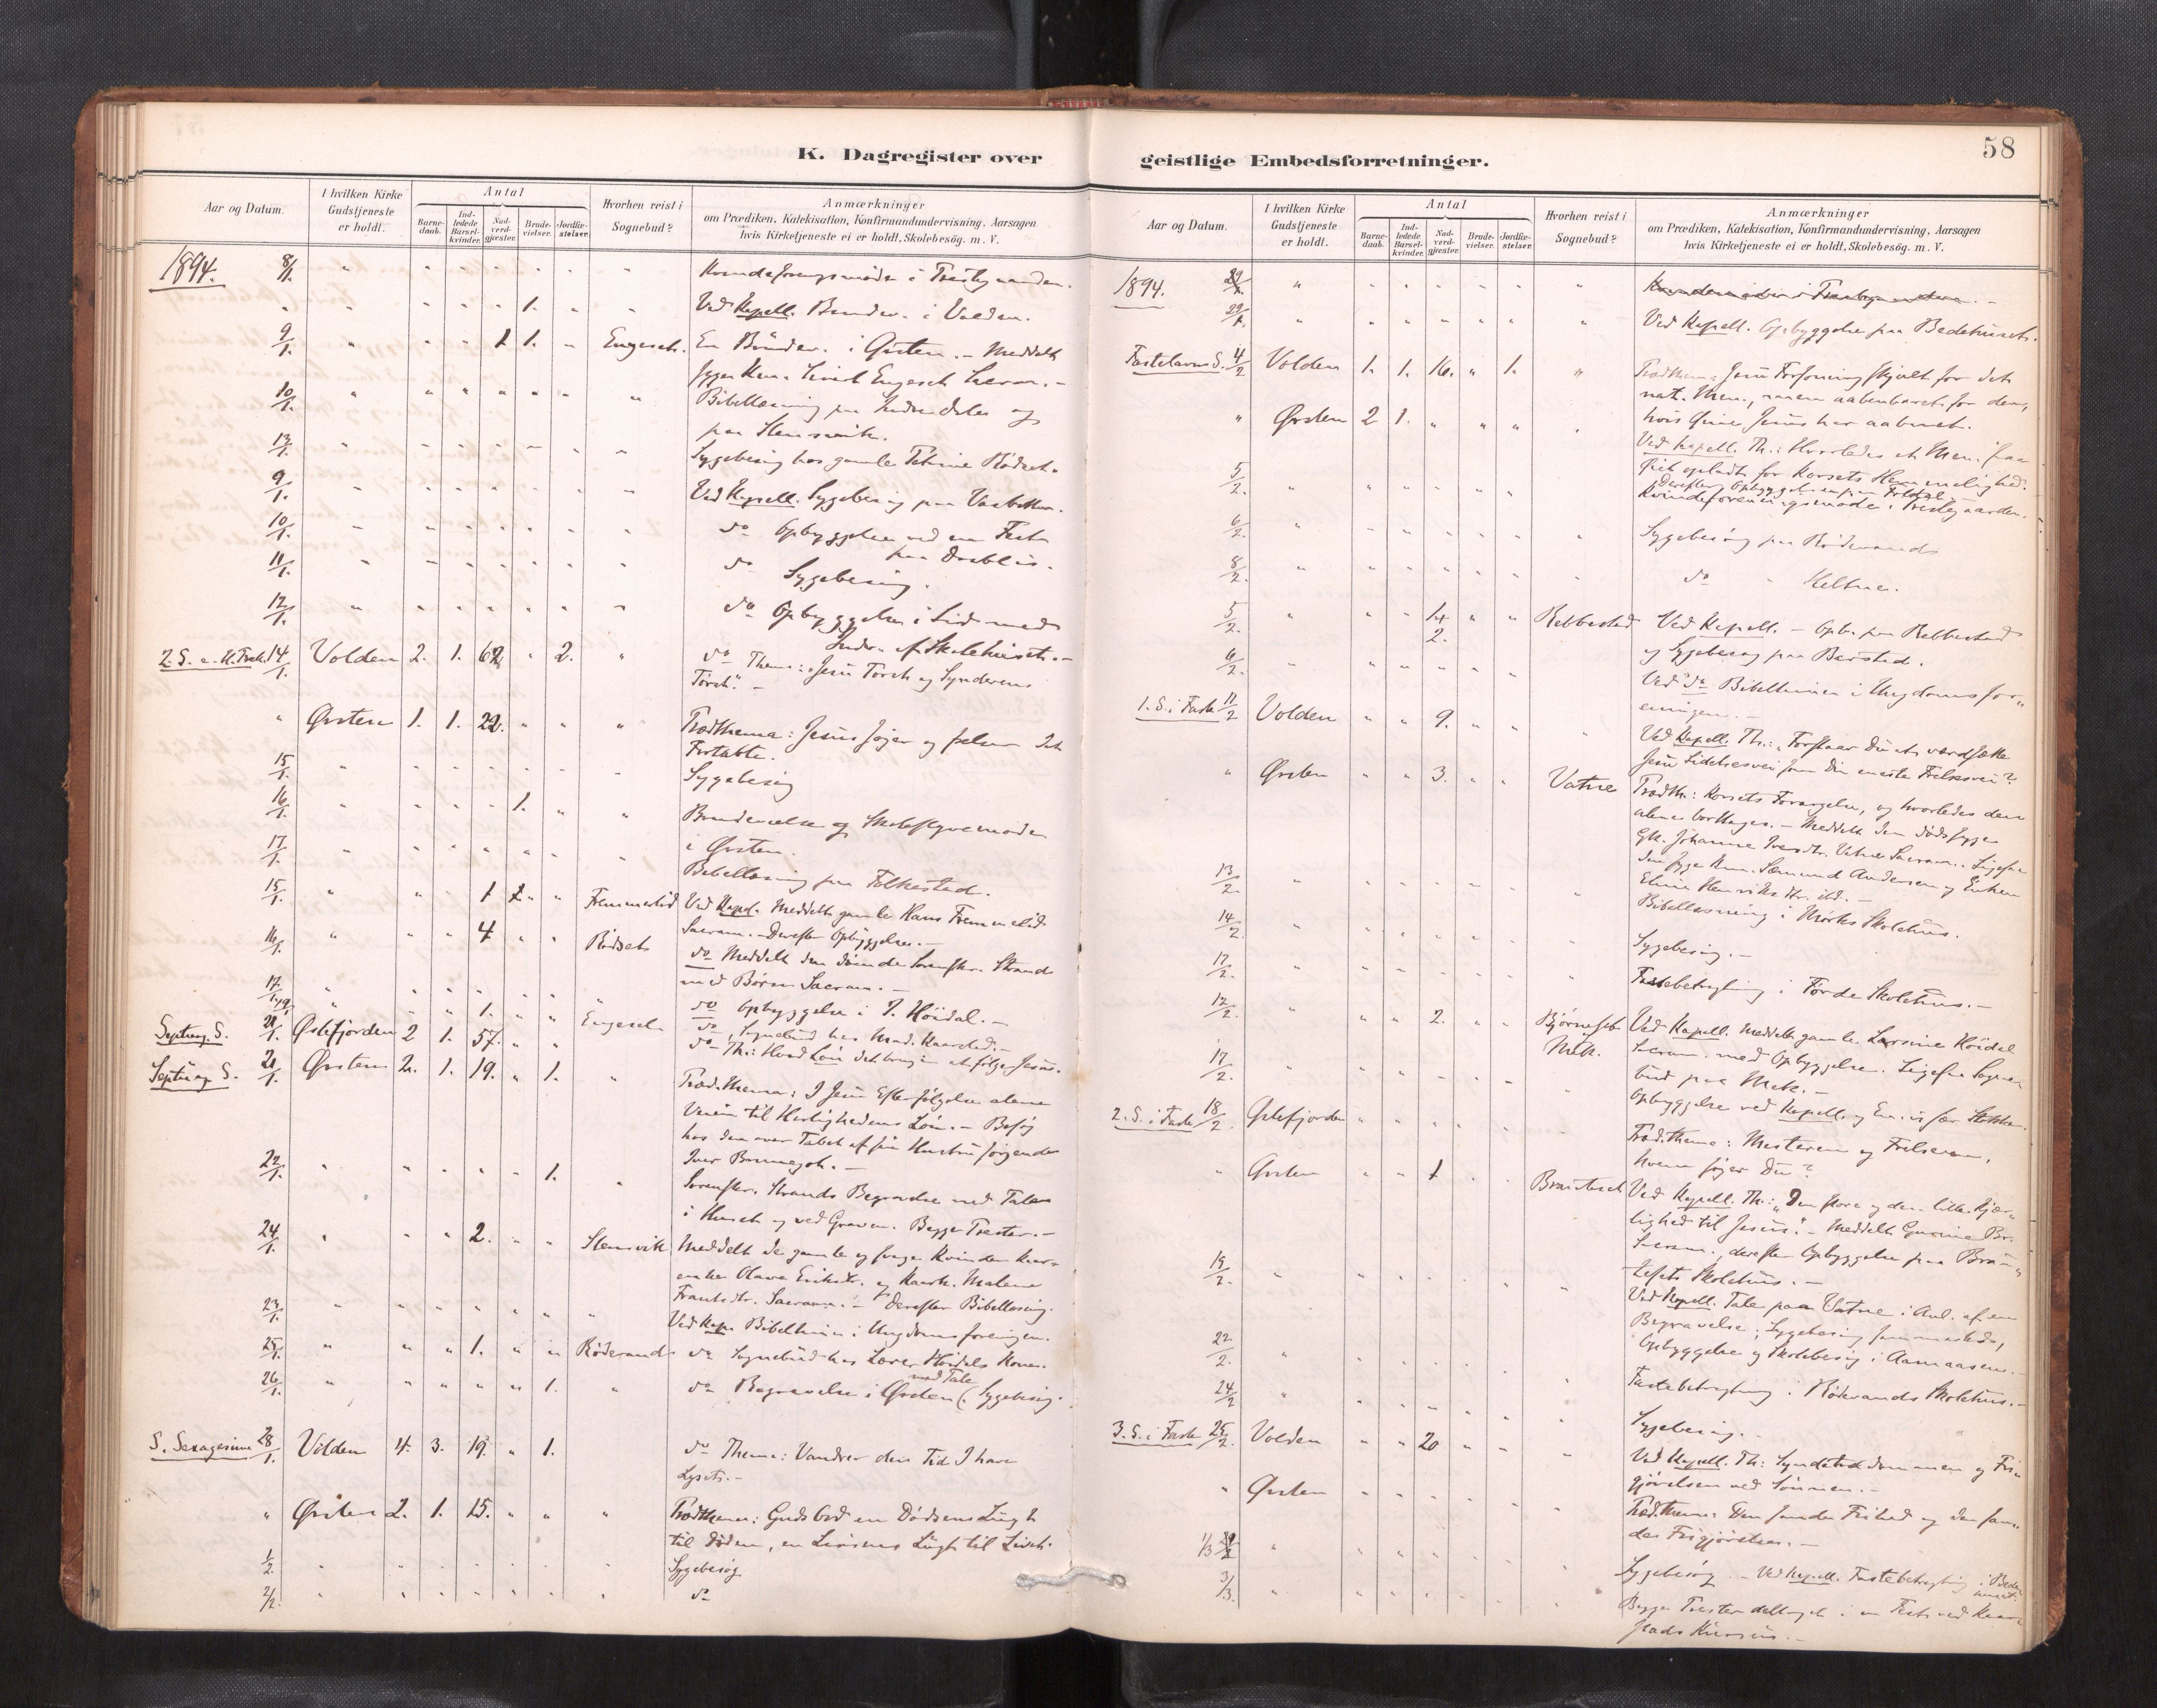 58
K. Dagregister over
Aar og Datum.
I hvilken Kirke Gudstjeneste er holdt.
Antal
Barnedaab.
Indledede Barselkvinder.
Nadverdgjester.
Brudevielser.
Jordfæstelser.
Hvorhen reist i Sognebud?
Anmærkninger
om Prædiken, Katekisation, Konfirmandundervisning, Aarsagen
hvis Kirketjeneste ei er holdt, Skolebesög. m. V.
1894. 8/1. " " " " " " " Kvindeforeningsmøde i Præstegaarden.
" " " " " 1. " " Ved Kapell. Brudev. i Volden.
9/1. " " " 1 1. " Engeseth. En Brudev. i Ørsten. – Meddelt
syge Kone Sivert Engeseth Sacram. –
10/1. " " " " " " " Bibellæsning paa
og
paa Stensvik.
13/1. " " " " " " " Sygebesøg hos gamle Rødset.
9/1. " " " " " " " Ved Kapell. Sygebesøg paa
10/1. " " " " " " " do Opbyggelse ved en Fest
paa Dravlaus.
11/1. " " " " " " " do Sygebesøg.
12/1. " " " " " " " do Opbyggelse i Lid med
Indv. af Skolehuset. –
2. S. e. H. 3 K. 14/1. Volden 2. 1. 62 " 2. " do Thema: "Jesu Tørst og Synderens
Tørst." –
" Ørsten 1. 1. 22. " " " Prædthema: Jesus søger og frelser det
Fortabte.
15/1. " " " " " " " Sygebesøg
16/1. " " " " 1. " " Brudevielse og Skolestyremøde
i Ørsten.
17/1. " " " " " " " Bibellæsning paa Folkestad.
15/1. " " " 1 " " Fremmerlid Ved Kapel. Meddelt gamle Hans Fremmerlid
Sacram. Derefter Opbyggelse. –
16/1. " " " 4 " " Rødset do Meddelt den døende Sorenskr. Strand
med Børn Sacram. –
17/1. " " " " " " " do Opbyggelse i Y. Høidal. –
19/1. " " " 1. " " Engeset do, Sognebud hos Mad. Kaarstad. –
Septuag. S. 21/1. Østefjorden 2 1. 57. " " do Th: Hvad Løn det bringer at følge Jesus.
Septuag. S. 21/1. Ørsten 2. 1. 19. " 1. " Præd. thema: I Jesu Efterfølgelse alene
Veien til Herlighedens Løn. – Besøg
hos den over Tabet af sin Hustru sørgende
Iver Brunegot. –
22/1. " " " " " 1. " Sorenskr. Strands Begravelse med Tale
i Huset og ved Graven. Begge Præster. –
24/1. " " " 2. " " Stensvik Meddelt de gamle og svage Kvinder
enke Olava Eriksdr. og Malene
Frantsdr. Sacram. – Derefter Bibellæsning.
23/1. " " " " " " " Ved Kap. Bibeltime i Ungdomsforeningen.
25/1. " " " 1. " " Røderand do Sognebud hos Lærer Høidals Kone.
26/1. " " " " " 1. " do Begravelse i Ørsten (med Tale. Sygebesøg.
S. Sexagesima 28/1. Volden 4. 3. 19. " 1. do Thema: Vandrer den Tid I have
Lyset. –
" Ørsten 2. 1. 15. " " " Prædthema: Guds Ord en Dødsens Lugt
til Døden, en Livsens Lugt til Livet.
1/2. " " " " " " " Sygebesøg
2/2. " " " " " " " do
geistlige Embedsforretninger.
Aar og Datum.
I hvilken Kirke Gudstjeneste er holdt.
Antal
Barnedaab.
Indledede Barselkvinder.
Nadverdgjester.
Brudevielser.
Jordfæstelser.
Hvorhen reist i Sognebud?
Anmærkninger
om Prædiken, Katekisation, Konfirmandundervisning, Aarsagen
hvis Kirketjeneste ei er holdt, Skolebesög. m. V.
1894. 29/1. " " " " " " " Kvindemøde i Præstegaarden. –
29/1. " " " " " " " Ved Kapell. Opbyggelse paa Bedehuset.
Fastelavns S. 4/2 Volden 1. 1. 16. " 1. " Prædthema: Jesu Forsoning skjult for det
nat. Men., men aabenbaret for dem,
hvis Øine Jesus har aabnet.
" Ørsten 2 1. " " " " Ved Kapell. Th.: Hvorledes et Men. faar
Øiet opladt for Korsets Hemmelighed.
Derefter Opbyggelse paa
5/2. " " " " " " " Kvindeforeningsmøde i Præstegaarden.
6/2. " " " " " " " Sygebesøg paa Røderand
8/2. " " " " " " " do " Heltne.
5/2. " " " 4 2. " " Rebbestad Ved Kapell. – Opb. paa Rebbestad
og Sygebesøg paa Berstad.
6/2. " " " " " " " Ved do Bibeltime i Ungdomsforeningen. –
1. S. i Faste 11/2 Volden " " 9. " " " Ved Kapell. Th.: "Forstaar Du at værdsætte
Jesu Lidelsesvei som Din eneste Frelsesvei?
" Ørsten " " 3. " " Vatne Prædth.: Korsets Forargelse, og hvorledes den
alene borttages. – Meddelt den dødssyge
Gk. Johanne Vatne Sacram. Ligesaa
den syge Kmn. Sæmund Andersen og Enken
Eline Henriksdtr. ibd. –
13/2. " " " " " " " Bibellæsning i Mørks Skolehus.
14/2. " " " " " " " Sygebesøg. –
17/2. " " " " " " " Fastebetragtning i Førde Skolehus. –
12/2. " " " 2. " " Bjørneset Mek. Ved Kapell. Meddelt gamle Larsine Høidal
Sacram. med Opbyggelse. Ligesaa Sognebud
paa Mek. –
17/2. " " " " " " " Opbyggelse ved Kapell. og
2. S. i Faste 18/2. Østefjorden " " " " " " Præd.thema: Mesteren og Frelseren,
hvem søger Du?
" Ørsten " " 1 " " Brauteset Ved Kapell. Th.: "Den store og den lille Kjærlighed
til Jesus". – Meddelt Gurine Br.
Sacram., derefter Opbyggelse paa Brautesets
Skolehus. –
19/2. " " " " " " " Ved Kapell. Tale paa Vatne i Anl. af en
Begravelse; Sygebesøg sammesteds,
Opbyggelse og Skolebesøg i Aamaasen. –
22/2. " " " " " " " Fastebetragtning i Røderands Skolehus. –
24/2 " " " " " " " Sygebesøg. –
3. S. i Faste 25/2. Volden " " 20 " " " Ved Kapell. Th: Syndetrældommen og Frigjørelsen
ved Sønnen. –
" Ørsten " " " " " " Præd.thema: Den sande Frihed og den sande
Frigjørelse. –
1/3 " " " " " " " Sygebesøg. – Ved Kapell. Fastebetragtning i Bedehuset.
3/3. " " " " " " " Begge Præster deltaget i en Fest ved Kaarstads
Kursus. –